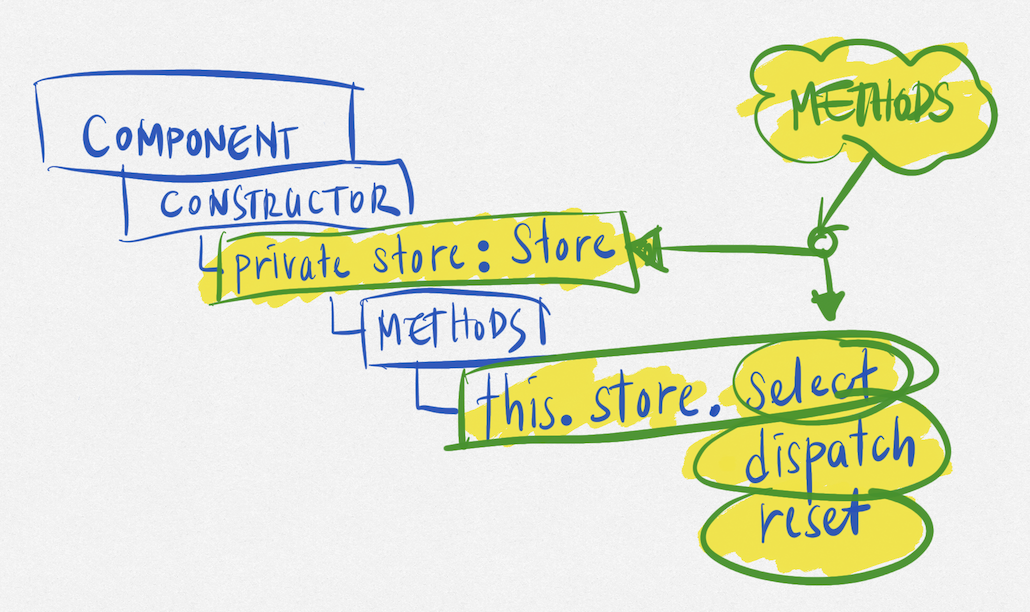 METHODS
COMPONENT
CONSTRUCTOR
private store: Store
METHODS
this.store.select
dispatch
reset